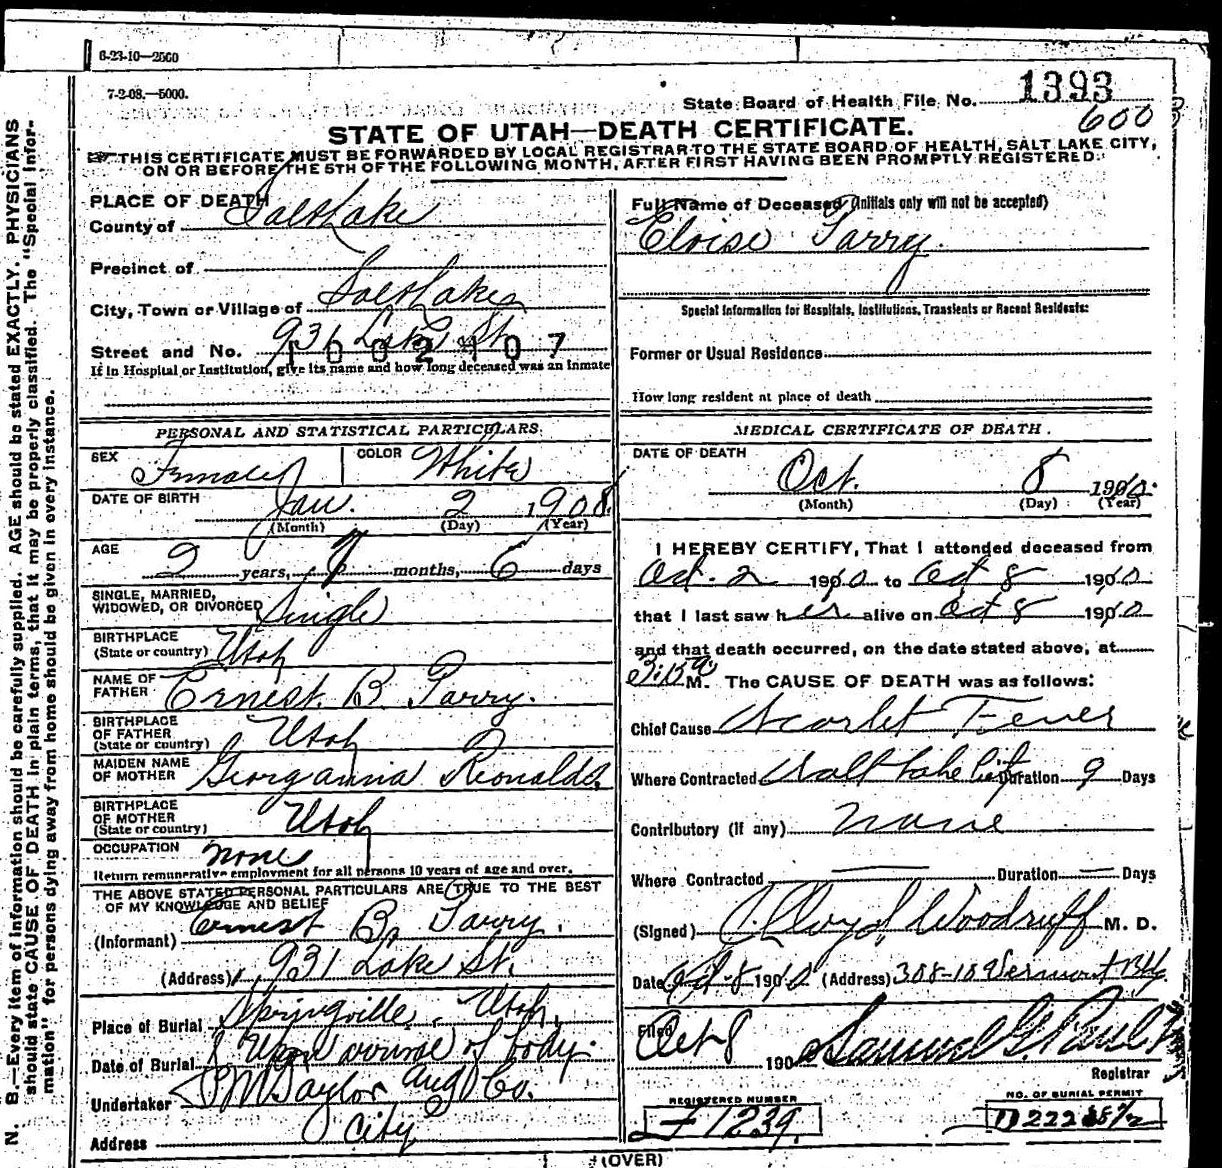 6-23-10—2500
7-2-08.—5000.
State Board of Health File No. 1393
600
STATE OF UTAH—DEATH CERTIFICATE.
THIS CERTIFICATE MUST BE FORWARDED BY LOCAL REGISTRAR TO THE STATE BOARD OF HEALTH, SALT LAKE CITY,
ON OR BEFORE THE 5TH OF THE FOLLOWING MONTH, AFTER FIRST HAVING BEEN PROMPTLY REGISTERED.
N. B.—Every item of information should be carefully supplied. AGE should be stated EXACTLY. PHYSICIANS
should state CAUSE OF DEATH in plain terms, that it may be properly classified. The "Special Infor-
mation" for persons dying away from home should be given in every instance.
PLACE OF DEATH
County of Salt Lake
Precinct of
City, Town or Village of Salt Lake
Street and No. 931 Lake St.
1002407
If in Hospital or Institution, give its name and how long deceased was an inmate
PERSONAL AND STATISTICAL PARTICULARS.
SEX Female COLOR White
DATE OF BIRTH Jan. 2 1908
(Month) (Day) (Year)
AGE 2 years, 9 months, 6 days
SINGLE, MARRIED,
WIDOWED, OR DIVORCED Single
BIRTHPLACE
(State or country) Utah
NAME OF
FATHER Ernest B. Parry.
BIRTHPLACE
OF FATHER
(State or country) Utah
MAIDEN NAME
OF MOTHER Georganna Rionalds
BIRTHPLACE
OF MOTHER
(State or country) Utah
OCCUPATION none
Return remunerative employment for all persons 10 years of age and over.
THE ABOVE STATED PERSONAL PARTICULARS ARE TRUE TO THE BEST
OF MY KNOWLEDGE AND BELIEF
(Informant) Ernest B. Parry.
(Address) 931 Lake St.
Place of Burial Springville, Utah.
Date of Burial Upon of body.
Undertaker S M Taylor and Co.
Address City
Full Name of Deceased (Initials only will not be accepted)
Eloise Parry.
Special Information for Hospitals, Institutions, Transients or Recent Residents:
Former or Usual Residence
How long resident at place of death
MEDICAL CERTIFICATE OF DEATH.
DATE OF DEATH
Oct. 8 1910.
(Month) (Day) (Year)
I HEREBY CERTIFY, That I attended deceased from
Oct. 2 1910 to Oct 8 1910
that I last saw her alive on Oct 8 1910
and that death occurred, on the date stated above, at
3:15 a M. The CAUSE OF DEATH was as follows:
Chief Cause Scarlet Fever
Where Contracted Salt Lake City Duration 9 Days
Contributory (if any) None
Where Contracted — Duration — Days
(Signed) Lloyd Woodruff M. D.
Date Oct 8 1910 (Address) 308-10 Vermont Bldg
Filed Oct 8 190 Samuel G. Paul
Registrar
REGISTERED NUMBER
F 1239.
NO. OF BURIAL PERMIT
D222
(OVER)